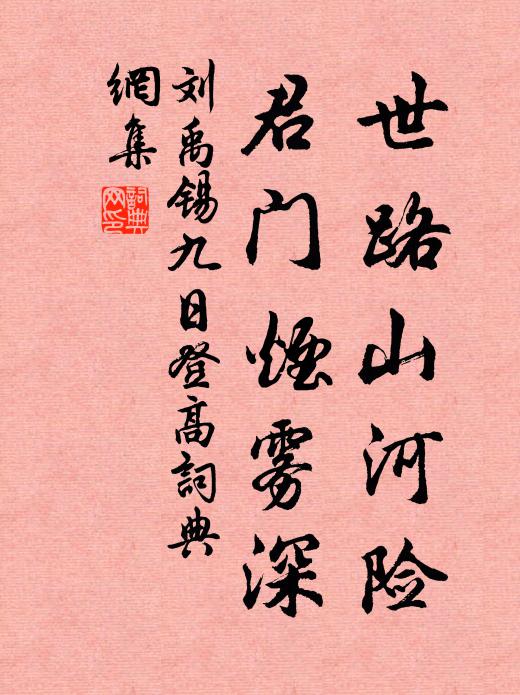 世路山河险
君门煙雾深
刘禹锡九日登高詞典
網集
詞典网印